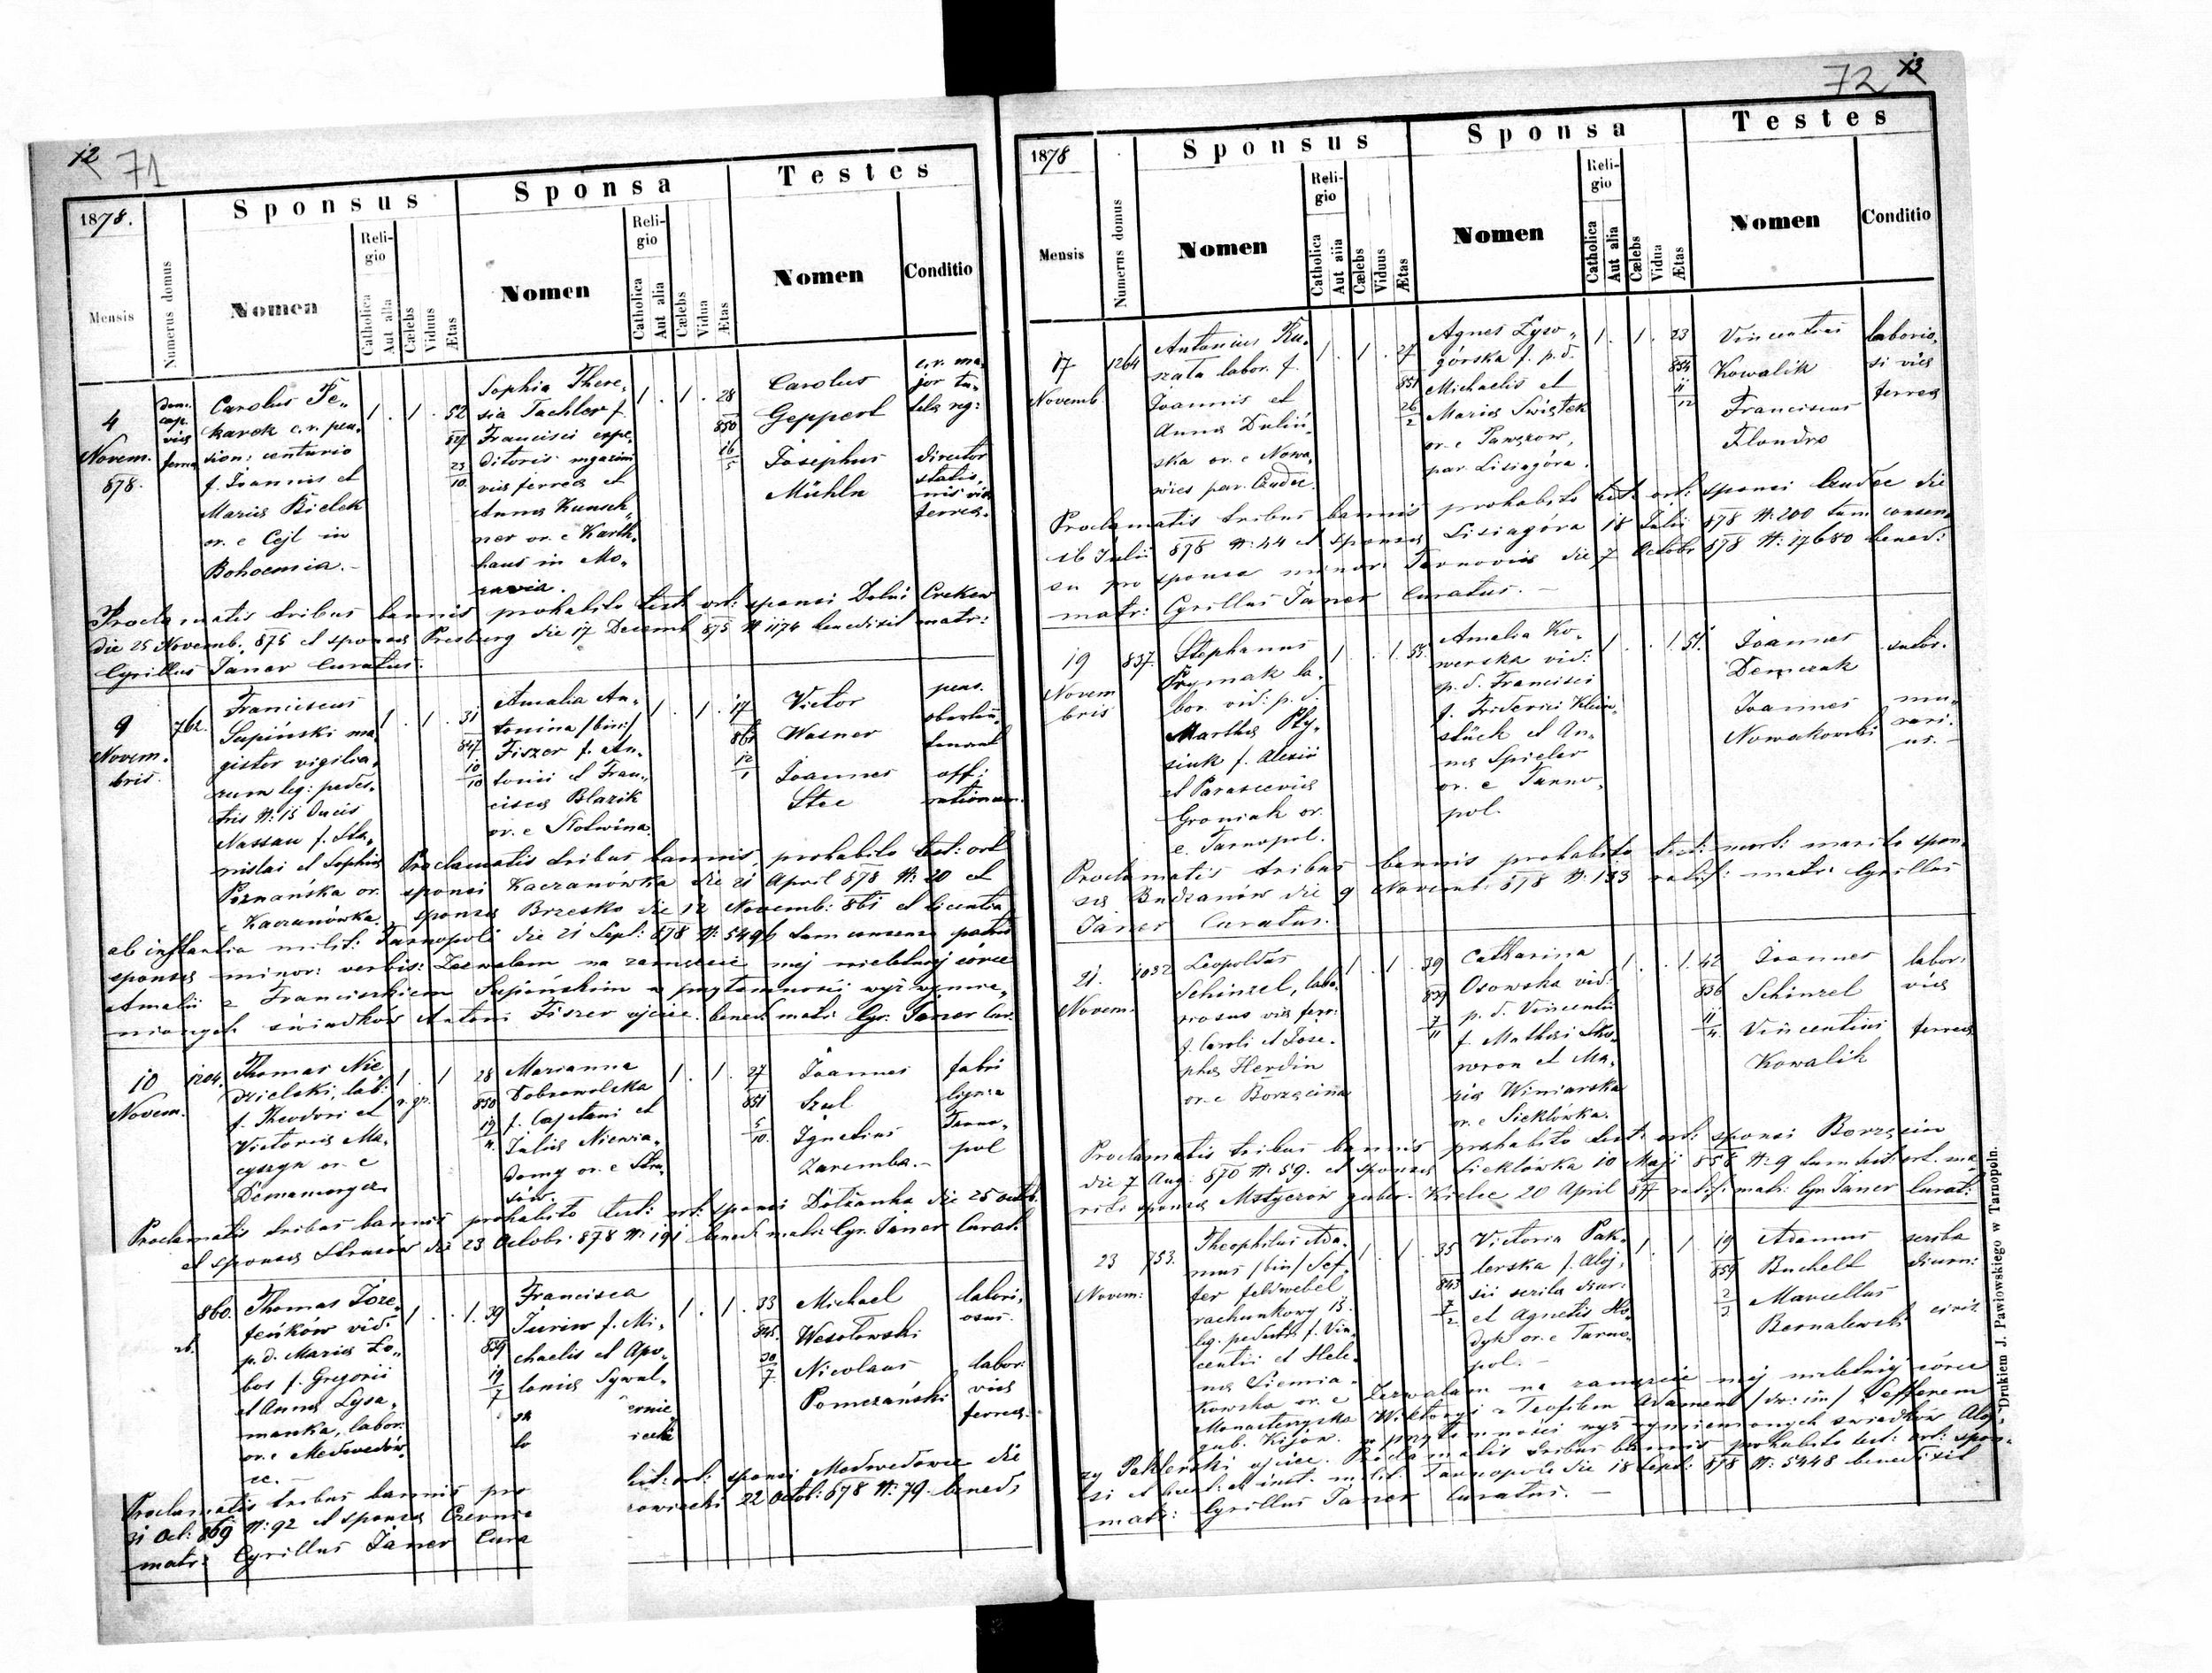 12 71
1878.
Mensis
Numerus domus
Sponsus
Nomen
Religio
Catholica
Aut alia
Cælebs
Viduus
Ætas
Sponsa
Nomen
Religio
Catholica
Aut alia
Cælebs
Vidua
Ætas
Testes
Nomen
Conditio
4
Novem.
878.
dom.
cap.
viæ
Carolus Pe-
karek c. r. pen-
sion: centurio
f. Joannis et
Mariæ Bielek
or. e Cejl in
Bohoemia.-
1 . 1 . 52
827
23
10.
Sophia There-
sia Tachler f.
Francisci expe-
ditoris
viæ ferreæ et
Annæ Kunsch-
ner or. e Karth-
haus in Mo-
ravia.
1 . 1 . 28
850
16
5
Carolus
Geppert
Josephus
Mühln
c. r. ma-
jor
director
statio-
nis viæ
ferreæ.
Proclamatis tribus bannis prohabito test: ort: sponsi Dolni
die 25 Novemb. 875 et sponsæ Presburg die 17 Decemb 875 N 1174 benedixit matr:
Cyrillus Janer Curatus.
9
Novem.
bris.
762.
Franciscus
Supiński ma-
gister vigilia-
rum leg: pedes-
tris N: 15 Ducis
Nassau f. Sta-
nislai et Sophiæ
Poznańska or.
e Kaczanówka.
1 . 1 . 31
847
10
10
Amalia An-
tonina /bin:/
Fiszer f. An-
tonii et Fran-
ciscæ Blazik
or. e Słotwina.
1 . 1 . 17
861
12
1
Victor
Wasner
Joannes
Stec
pens.
oberlieu-
tenant
off:
rationum.
Proclamatis tribus bannis, prohabito test: ort
sponsi Kaczanówka die 21 April 878 N: 20 et
sponsæ Brzesko die 12 Novemb: 861 et licentia
ab instantia milit: Tarnopoli die 21 Sept: 878 N: 5496 tum consens patris
sponsæ minor: verbis: Zezwalam na zamęzcie mej nieletniej córce
Amalii z Franciszkiem Supińskim w przytomności wyż wymie-
nionych świadków Antoni Fiszer ojciec. bened: matr: Cyr. Janer Cur.
10
Novem.
1204.
Thomas Nie-
dzielski, lab:
f. Theodori et
Victoriæ Ma-
cyszyn or. e
Domamorycz.
1 . 1
r. gr.
28
850
19
11.
Marianna
Dobrowolska
f. Cajetani et
Juliæ Niewia-
domy or. e Stru-
sów.
1 . 1 . 27
851
5
10.
Joannes
Szul
Ignatius
Zaremba.-
fabri
Tarno-
pol
Proclamatis tribus bannis prohabito test: ort: sponsi Dołżanka die 25 octob.
et sponsæ Strusów die 23 Octobr: 878 N: 191 bened: matr: Cyr. Janer Curat:
860.
Thomas Joze-
feńków vid:
p. d. Mariæ Zo-
bos f. Gregorii
et Annæ Lysa-
manka, labor:
or. e Medwedów-
ce.-
1 . . 1 . 39
839
19
7
Francisca
Juriw f. Mi-
chaelis et Apo-
loniæ Sywul-
1 . 1 . 33
845.
30
7.
Michael
Wesołowski
Nicolaus
Pomezański
labori-
osus.
labor:
viæ
ferreæ.
Proclamatis tribus bannis pro
test: ort: sponsi Medwedowce die
31 Oct: 869 N: 92 et sponsæ
22 Octob: 878 N: 79. bened:
matr: Cyrillus Janer Cura
72 13
1878
Mensis
Numerus domus
Sponsus
Nomen
Religio
Catholica
Aut alia
Cælebs
Viduus
Ætas
Sponsa
Nomen
Religio
Catholica
Aut alia
Cælebs
Vidua
Ætas
Testes
Nomen
Conditio
17
Novemb
1264
Antonius Ku-
szata labor. f.
Joannis et
Annæ Duliń-
ska or. e Nowa-
wies par. Czudec.
1 . 1 . 27
851
26
2
Agnes Łyso-
górska f. p. d.
Michaelis et
Mariæ Świątek
or. e Pawęzow,
par. Lisiagóra.
1 . 1 . 23
854
11
12
Vincentius
Kowalik
Franciscus
Flondro
laborio-
si viæ
ferreæ
Proclamatis tribus bannis prohabito test: ort: sponsi Czudec die
16 Julii 878 N: 44 et sponsæ Lisiagóra 18 Julii 878 N: 200 tum consen-
su pro sponsa minor: Tarnoviæ die 7 Octobr 878 N: 17680 bened:
matr: Cyrillus Janer Curatus.-
19
Novem
bris
837.
Stephanus
Prymak la-
bor. vid: p. d.
Marthæ Ply-
siuk f. Alexii
et Parasceviæ
Groniak or.
e Tarnopol.
1 . . 1 . 55.
Amalia Ko-
werska vid:
p. d. Francisci
f. Friderici Klein-
stück et An-
næ Spieler
or. e Tarno-
pol.
1 . . 1 51.
Joannes
Demczak
Joannes
Nowakowski
sutor.
mu-
rari-
us.-
Proclamatis tribus bannis prohabito test: mort: marito spon-
sæ Budzanów die 9 Novemb: 878 N: 133 ratif: matr: Cyrillus
Janer Curatus.
21.
Novem.
1032
Leopoldus
Schinzel, labo-
riosus viæ ferr:
f. Caroli et Jose-
phæ Herdin
or. e Borzęcina
1 . 1 . 39
839
7
11
Catharina
Osowska vid:
p. d. Vincentii
f. Mathæi Sko-
wron et Ma-
riæ Winiarska
or. e Sieklówka.
1 . . 1 . 42
836
11
4.
Joannes
Schinzel
Vincentius
Kowalik
labor:
viæ
ferreæ
Proclamatis tribus bannis prohabito test: ort: sponsi Borzęcin
die 7 Aug: 870 N: 59. et sponsæ Sieklówka 10 Maji 858 N: 9 tum test: ort. ma-
riti sponsæ Mstyczów guber. Kielce 20 April 877 ratif: matr: Cyr. Janer Curat:
23
Novem:
753.
Theophilus Ada-
mus /bin/ Sef-
fer feldwebel
rachunkowy 15.
leg. pedestr: f. Vin-
centii et Hele-
næ Siemia-
kowska or. e
Monasteryska
gub. Kijów.
1 . 1 . 35
843
7
2.
Victoria Pak-
lerska f. Aloj-
sii scribæ diur:
et Agnetis Ho-
dyk or. e Tarno-
pol.-
1 . 1 19
859
2
3
Adamus
Buchelt
Marcellus
Bernalewski
scriba
diurn:
civis.
Zezwalam na zamęzcie mej nieletniej córce
Wiktoryi z Teofilem Adamem /dw: im/ Sefferem
w przytomności wyż wymienionych świadków Aloj-
zy Paklerski ojciec. Proclamatis tribus bannis prohabito test: ort: spon-
si et licent: ab inst. milit. Tarnopole die 18 Sept: 878 N: 5448 benedixit
matr: Cyrillus Janer Curatus.-
Drukiem J. Pawłowskiego w Tarnopolu.